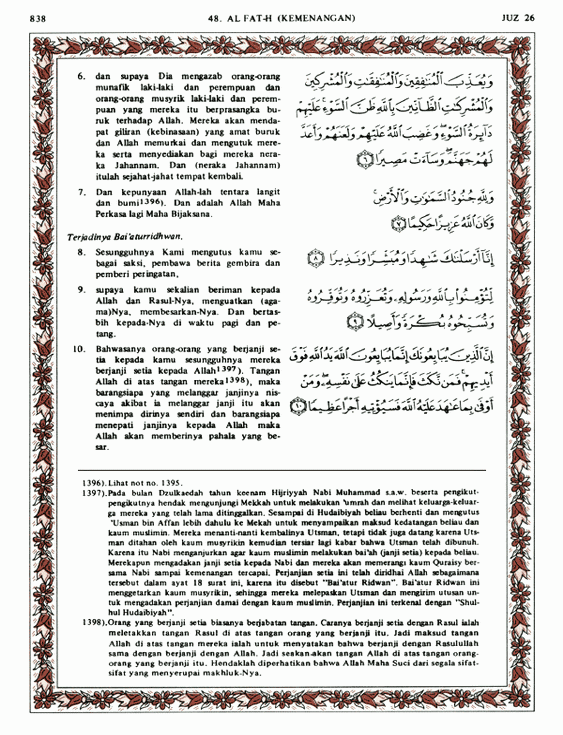 838
48. AL FAT-H (KEMENANGAN)
JUZ 26
6. dan supaya Dia mengazab orang-orang
munafik laki-laki dan perempuan dan
orang-orang musyrik laki-laki dan perem-
puan yang mereka itu berprasangka bu-
ruk terhadap Allah. Mereka akan menda-
pat giliran (kebinasaan) yang amat buruk
dan Allah memurkai dan mengutuk mere-
ka serta menyediakan bagi mereka nera-
ka Jahannam. Dan (neraka Jahannam)
itulah sejahat-jahat tempat kembali.
وَيُعَذِّبَ الْمُنَٰفِقِينَ وَالْمُنَٰفِقَٰتِ وَالْمُشْرِكِينَ
وَالْمُشْرِكَٰتِ الظَّآنِّينَ بِاللَّهِ ظَنَّ السَّوْءِ عَلَيْهِمْ
دَآئِرَةُ السَّوْءِ وَغَضِبَ اللَّهُ عَلَيْهِمْ وَلَعَنَهُمْ وَأَعَدَّ
لَهُمْ جَهَنَّمَ وَسَآءَتْ مَصِيرًا ۝٦
7. Dan kepunyaan Allah-lah tentara langit
dan bumi1396). Dan adalah Allah Maha
Perkasa lagi Maha Bijaksana.
وَلِلَّهِ جُنُودُ السَّمَٰوَٰتِ وَالْأَرْضِ
وَكَانَ اللَّهُ عَزِيزًا حَكِيمًا ۝٧
Terjadinya Bai'aturridhwan.
8. Sesungguhnya Kami mengutus kamu se-
bagai saksi, pembawa berita gembira dan
pemberi peringatan,
إِنَّآ أَرْسَلْنَٰكَ شَٰهِدًا وَمُبَشِّرًا وَنَذِيرًا ۝٨
9. supaya kamu sekalian beriman kepada
Allah dan Rasul-Nya, menguatkan (aga-
ma)Nya, membesarkan-Nya. Dan bertas-
bih kepada-Nya di waktu pagi dan pe-
tang.
لِتُؤْمِنُوا بِاللَّهِ وَرَسُولِهِ وَتُعَزِّرُوهُ وَتُوَقِّرُوهُ
وَتُسَبِّحُوهُ بُكْرَةً وَأَصِيلًا ۝٩
10. Bahwasanya orang-orang yang berjanji se-
tia kepada kamu sesungguhnya mereka
berjanji setia kepada Allah1397). Tangan
Allah di atas tangan mereka1398), maka
barangsiapa yang melanggar janjinya nis-
caya akibat ia melanggar janji itu akan
menimpa dirinya sendiri dan barangsiapa
menepati janjinya kepada Allah maka
Allah akan memberinya pahala yang be-
sar.
إِنَّ الَّذِينَ يُبَايِعُونَكَ إِنَّمَا يُبَايِعُونَ اللَّهَ يَدُ اللَّهِ فَوْقَ
أَيْدِيهِمْ فَمَنْ نَّكَثَ فَإِنَّمَا يَنْكُثُ عَلَىٰ نَفْسِهِ وَمَنْ
أَوْفَىٰ بِمَا عَٰهَدَ عَلَيْهُ اللَّهَ فَسَيُؤْتِيهِ أَجْرًا عَظِيمًا ۝١٠
1396). Lihat not no. 1395.
1397). Pada bulan Dzulkaedah tahun keenam Hijriyyah Nabi Muhammad s.a.w. beserta pengikut-
pengikutnya hendak mengunjungi Mekkah untuk melakukan 'umrah dan melihat keluarga-keluar-
ga mereka yang telah lama ditinggalkan. Sesampai di Hudaibiyah beliau berhenti dan mengutus
'Usman bin Affan lebih dahulu ke Mekah untuk menyampaikan maksud kedatangan beliau dan
kaum muslimin. Mereka menanti-nanti kembalinya Utsman, tetapi tidak juga datang karena Uts-
man ditahan oleh kaum musyrikin kemudian tersiar lagi kabar bahwa Utsman telah dibunuh.
Karena itu Nabi menganjurkan agar kaum muslimin melakukan bai'ah (janji setia) kepada beliau.
Merekapun mengadakan janji setia kepada Nabi dan mereka akan memerangi kaum Quraisy ber-
sama Nabi sampai kemenangan tercapai. Perjanjian setia ini telah diridhai Allah sebagaimana
tersebut dalam ayat 18 surat ini, karena itu disebut "Bai'atur Ridwan". Bai'atur Ridwan ini
menggetarkan kaum musyrikin, sehingga mereka melepaskan Utsman dan mengirim utusan un-
tuk mengadakan perjanjian damai dengan kaum muslimin. Perjanjian ini terkenal dengan "Shul-
hul Hudaibiyah".
1398). Orang yang berjanji setia biasanya berjabatan tangan. Caranya berjanji setia dengan Rasul ialah
meletakkan tangan Rasul di atas tangan orang yang berjanji itu. Jadi maksud tangan
Allah di atas tangan mereka ialah untuk menyatakan bahwa berjanji dengan Rasulullah
sama dengan berjanji dengan Allah. Jadi seakan-akan tangan Allah di atas tangan orang-
orang yang berjanji itu. Hendaklah diperhatikan bahwa Allah Maha Suci dari segala sifat-
sifat yang menyerupai makhluk-Nya.